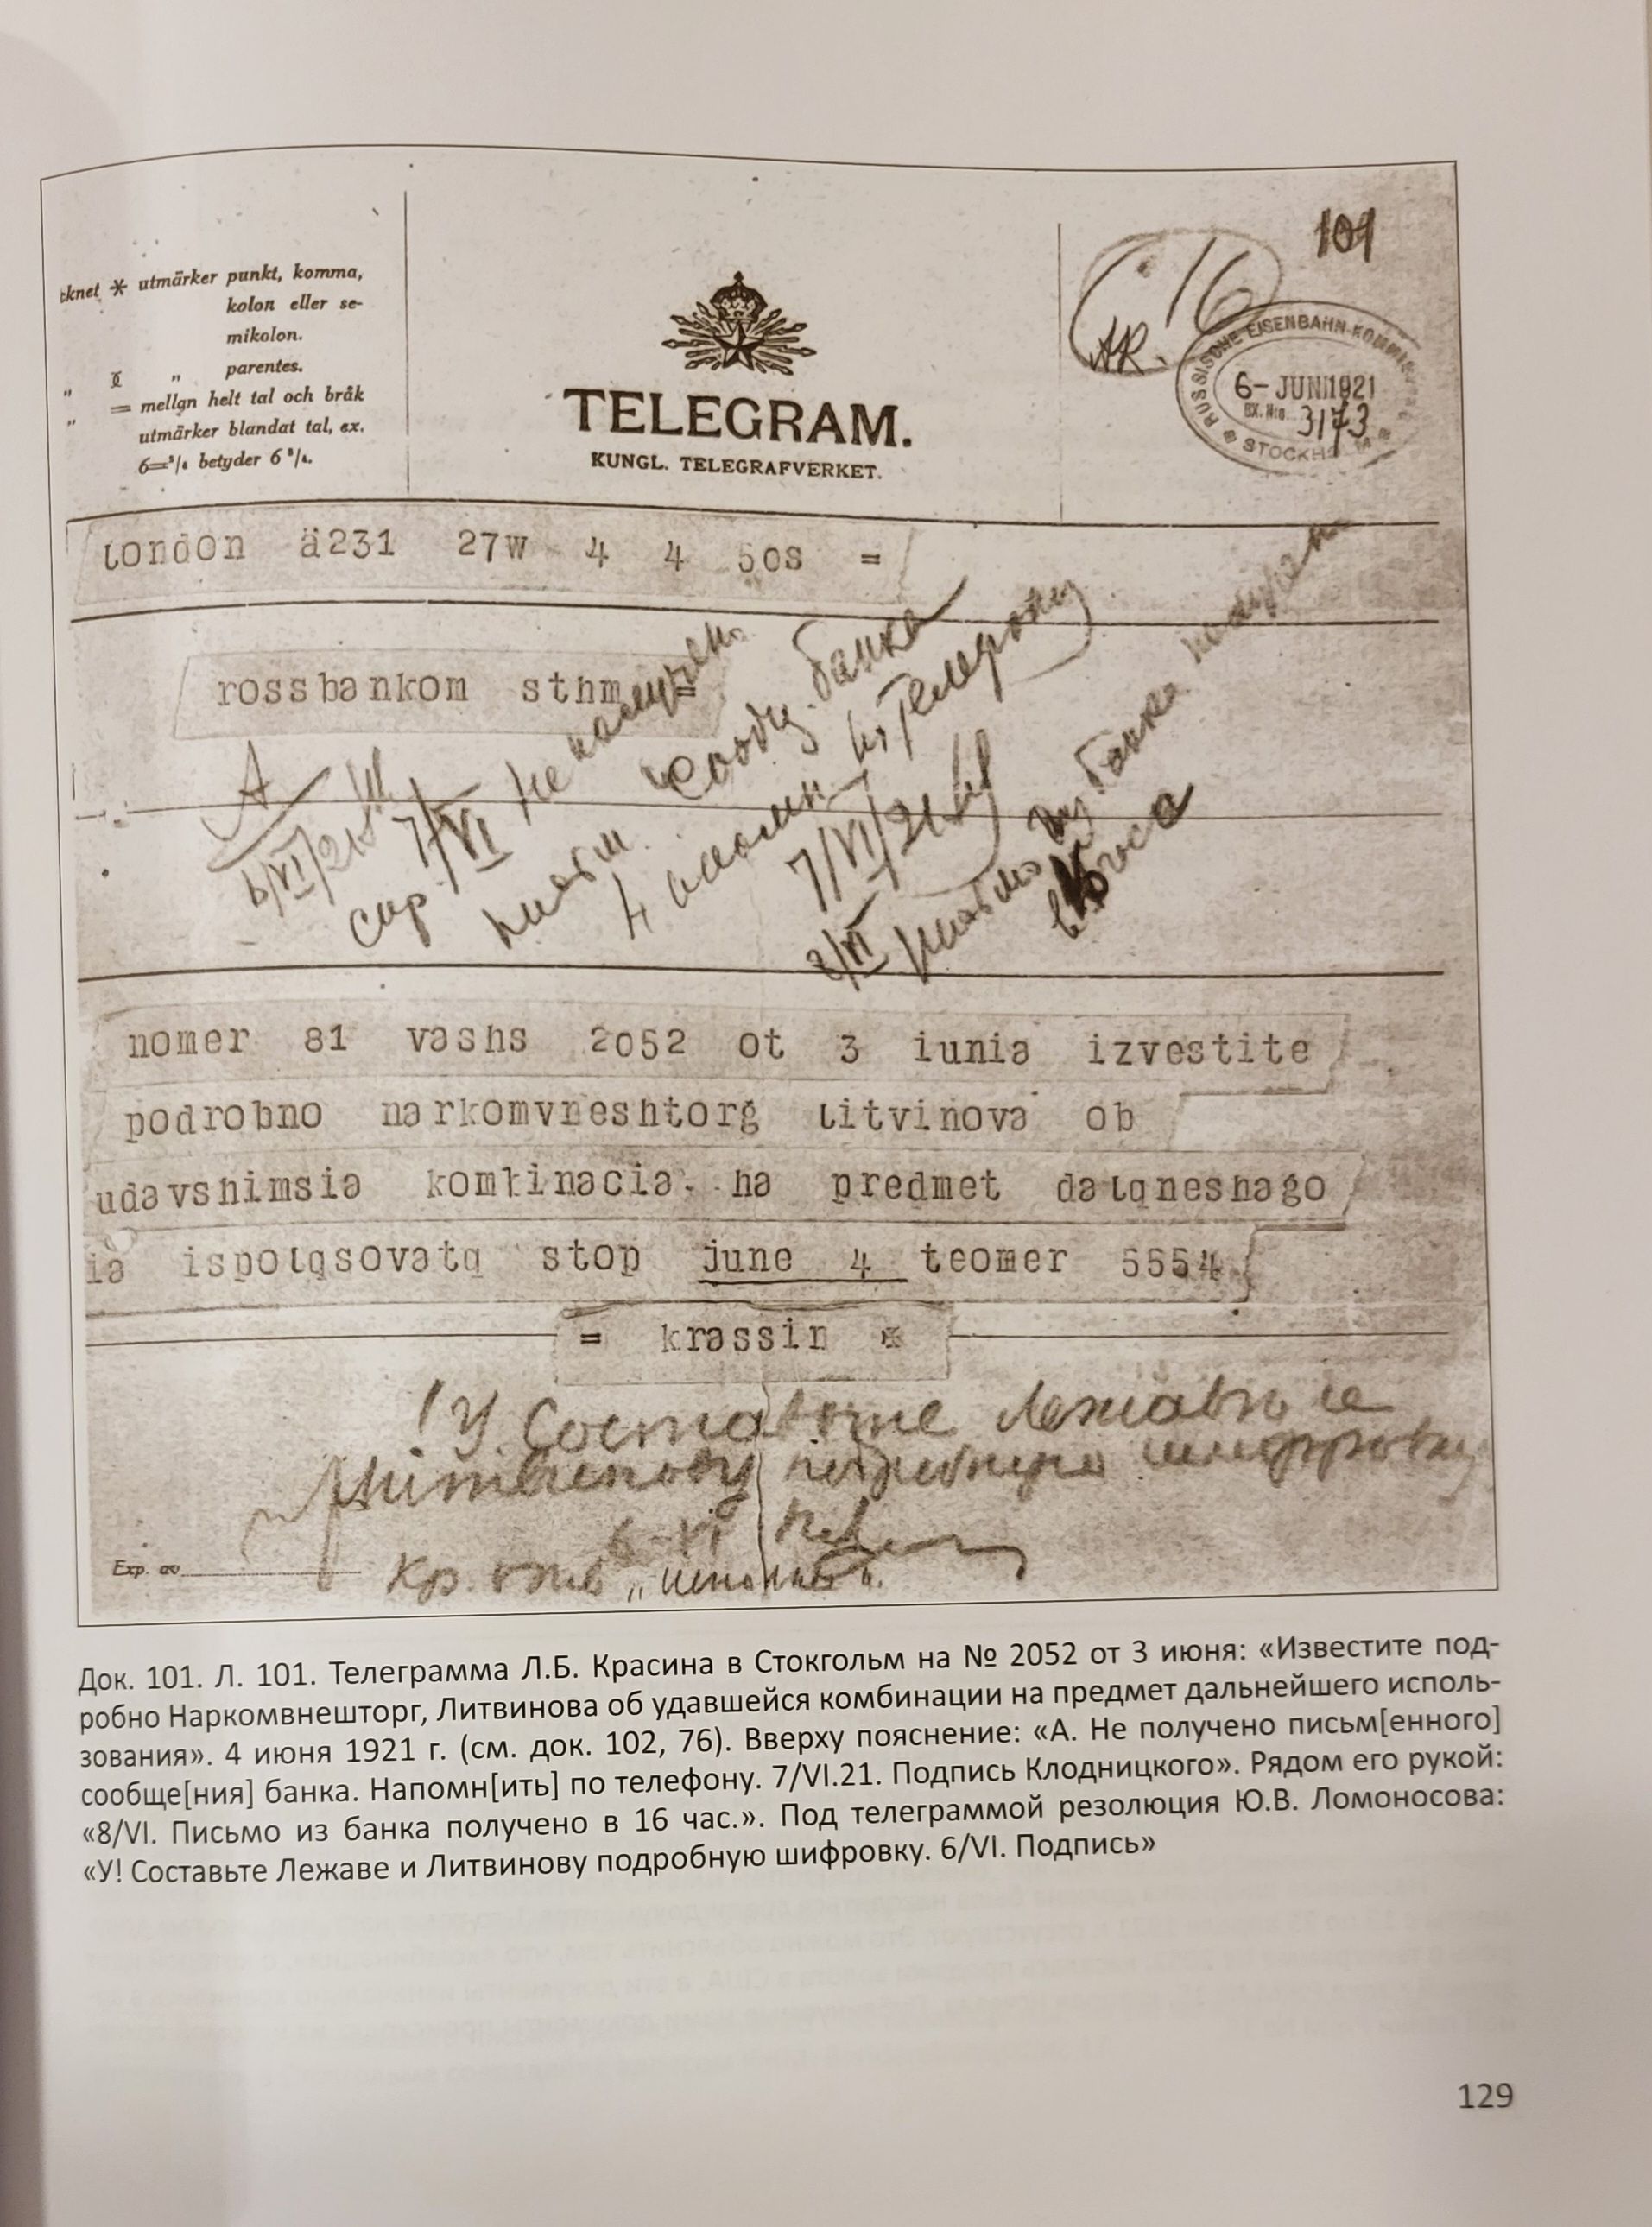 101
16
AR.
RUSSISCHE EISENBAHN-KOMMI
6- JUNI 1921
BX. No. 3173
STOCKHOLM
cknet * utmärker punkt, komma,
kolon eller se-
mikolon.
" " parentes.
" = mellan helt tal och bråk
utmärker blandat tal, ex.
6=³/₄ betyder 6 ³/₄.
TELEGRAM.
KUNGL. TELEGRAFVERKET.
london ä231 27w 4 4 50s =
rossbankom sthm =
A
6/VI/21
7/VI Не получено
письм. сообщ. банка
напомн. по телефону
7/VI/21
8/VI Письмо из банка получено
в 16 часа
nomer 81 vashs 2052 ot 3 iunia izvestite
podrobno narkomvneshtorg litvinova ob
udavshimsia komtinacia. na predmet dalqneshago
ia ispolqsovatq stop june 4 teomer 5554
= krassin *
! У. Составьте Лежаве и
Литвинову подробную шифровку
6-VI
Кр.
Exp. av
Док. 101. Л. 101. Телеграмма Л.Б. Красина в Стокгольм на № 2052 от 3 июня: «Известите под-
робно Наркомвнешторг, Литвинова об удавшейся комбинации на предмет дальнейшего исполь-
зования». 4 июня 1921 г. (см. док. 102, 76). Вверху пояснение: «А. Не получено письм[енного]
сообще[ния] банка. Напомн[ить] по телефону. 7/VI.21. Подпись Клодницкого». Рядом его рукой:
«8/VI. Письмо из банка получено в 16 час.». Под телеграммой резолюция Ю.В. Ломоносова:
«У! Составьте Лежаве и Литвинову подробную шифровку. 6/VI. Подпись»
129